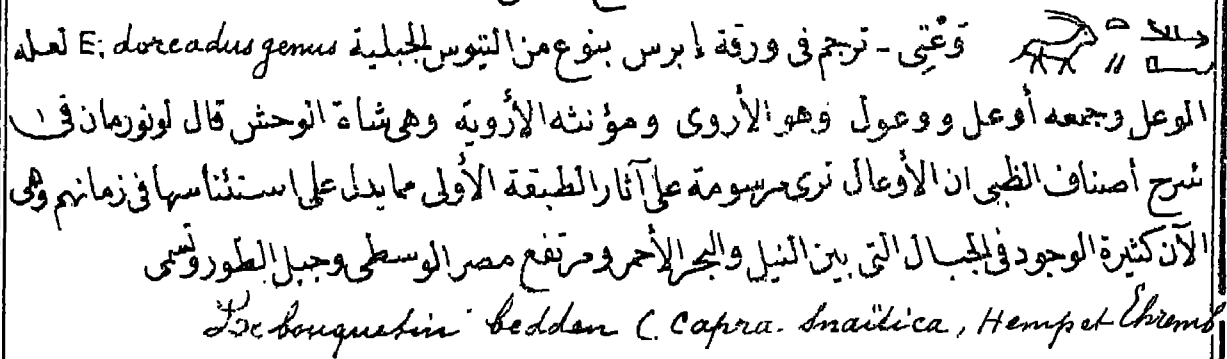 قَعْتِى - ترجم فى ورقة إبرس بنوع من التيوس الجبلية E: dorcadus genus لعله
الوعل وجمعه أوعل ووعول وهو الأروى ومؤنثه الأروية وهى شاة الوحش قال لونورمان فى
شرح أصناف الظبى ان الأوعال ترى مرسومة على آثار الطبقة الأولى مما يدل على استئناسها فى زمانهم وهى
الآن كثيرة الوجود فى الجبال التى بين النيل والبحر الأحمر ومرتفع مصر الوسطى وجبل الطور وتسمى
Le bouquetin bedden ( Capra. Snaïtica, Hemp et Ehremb